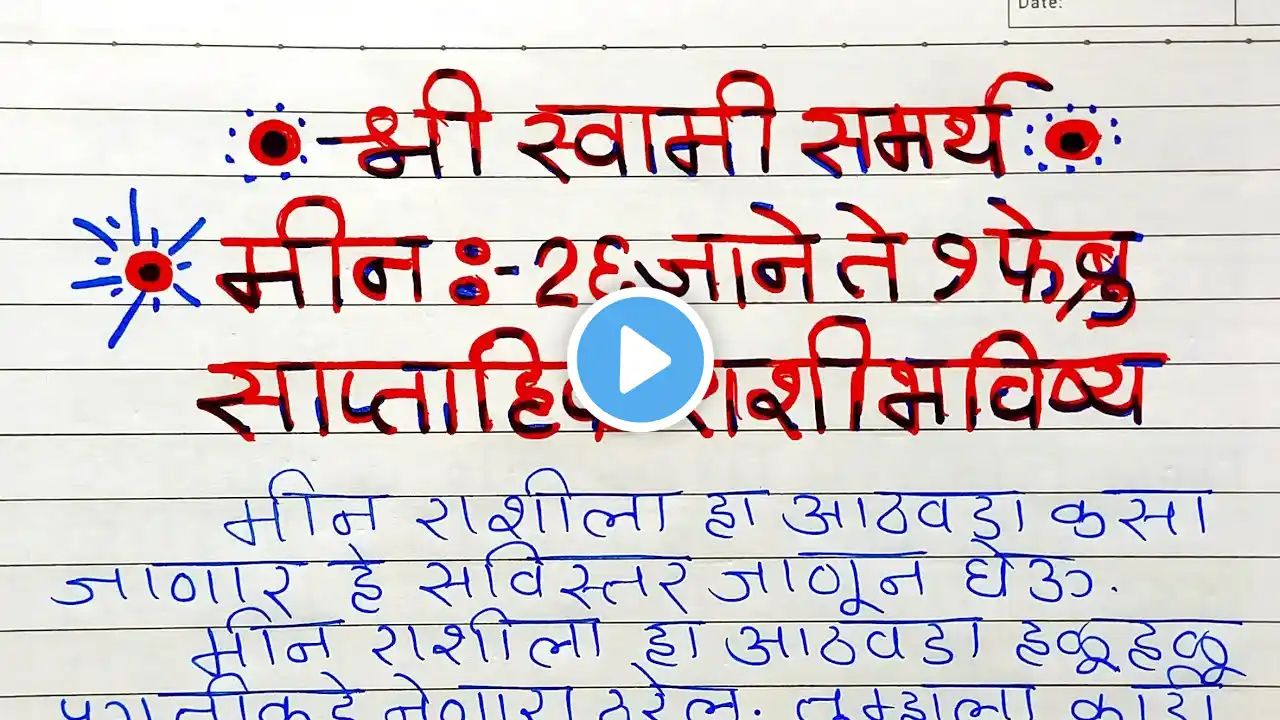 Date:
श्री स्वामी समर्थ
मीन :- २६ जाने ते १ फेब्रु
साप्ताहिक राशीभविष्य
मीन राशीला हा आठवडा कसा
जाणार हे सविस्तर जाणून घेऊ.
मीन राशीला हा आठवडा हळूहळू
प्रगतीकडे नेणारा ठरेल. तुम्हाला काही